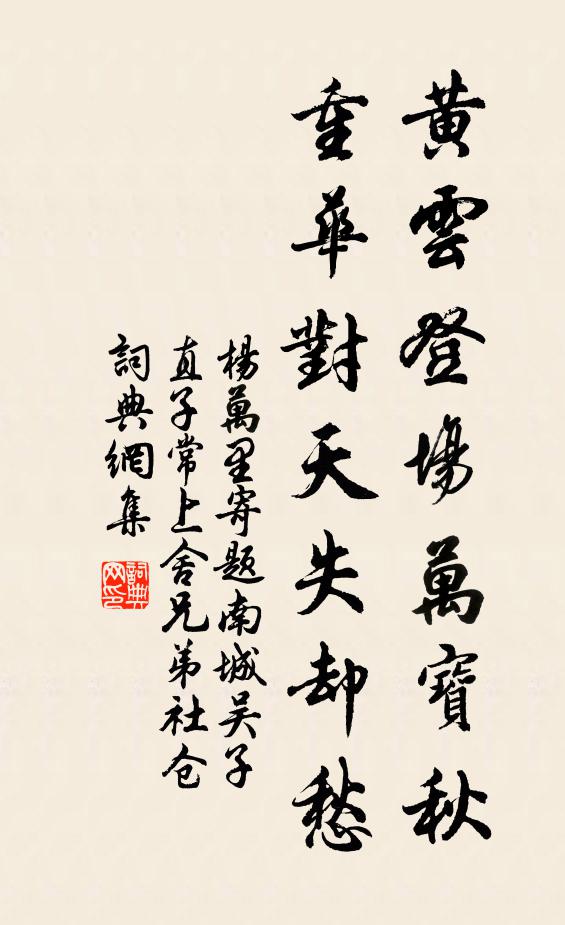 黃雲登場萬寶秋
重華對天失却愁
楊萬里寄題南城吴子
直子常上舍兄弟社仓
詞典網集
詞典网印